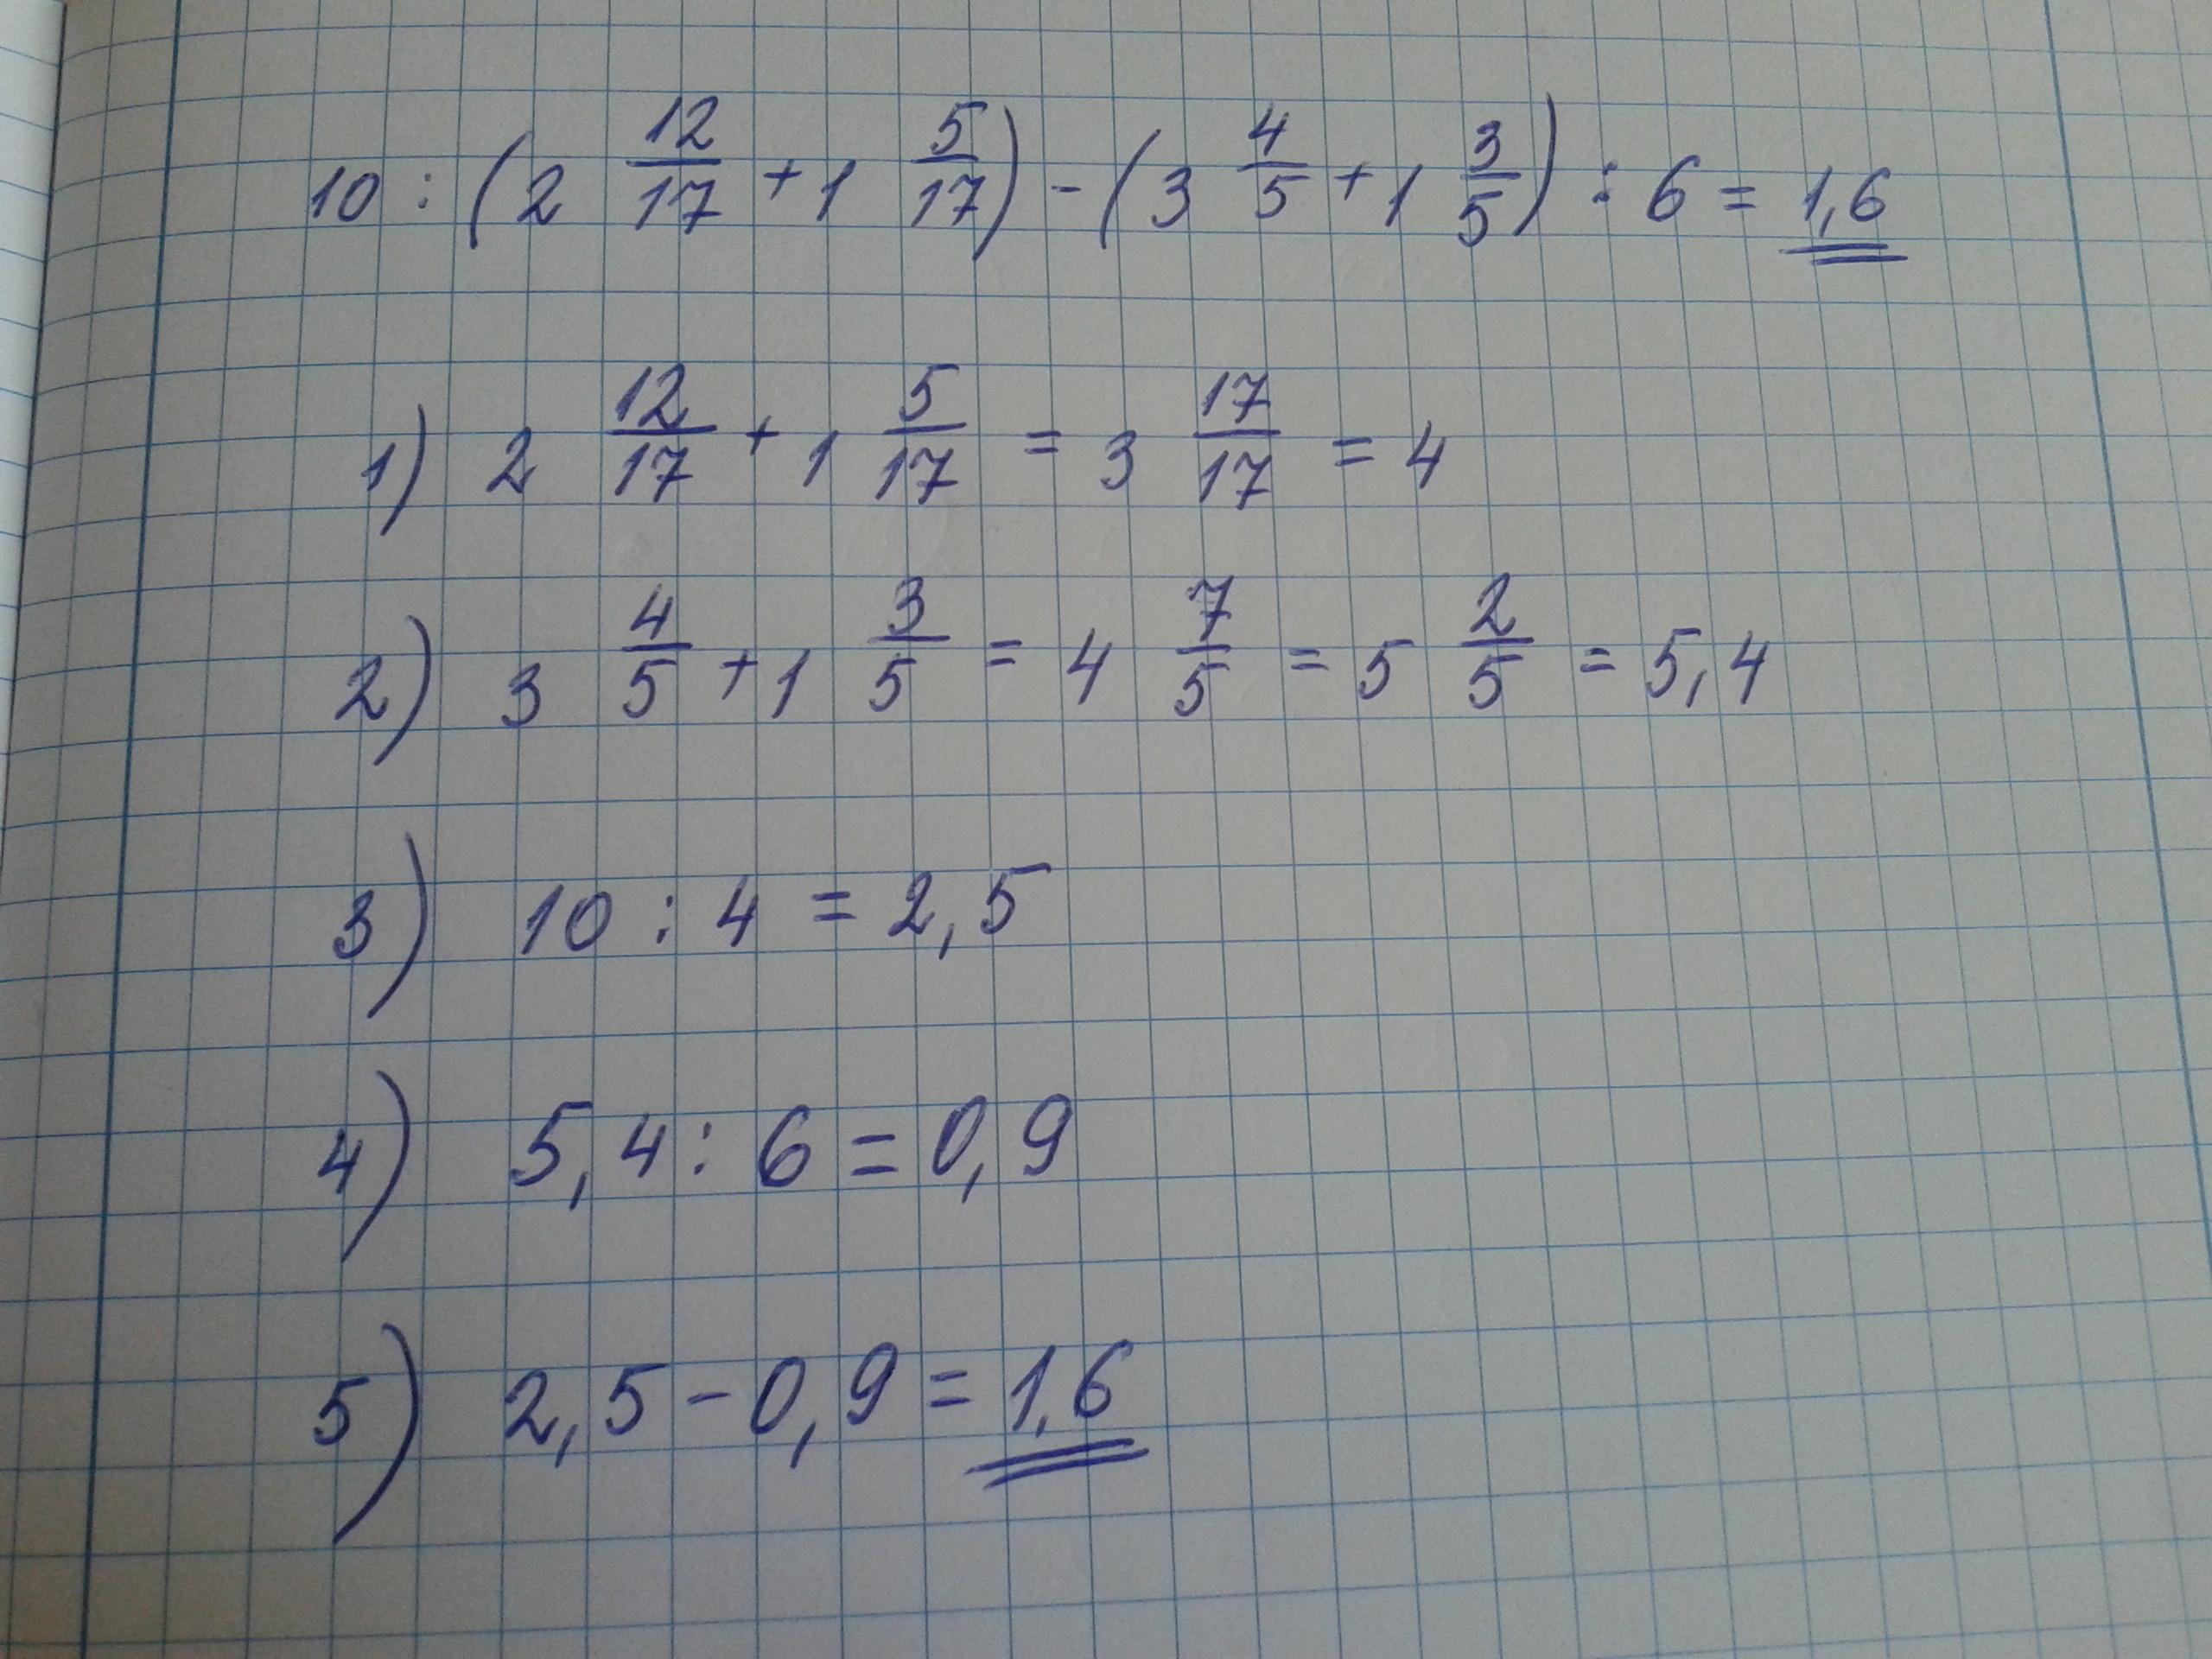 10 : (2 12/17 + 1 5/17) - (3 4/5 + 1 3/5) : 6 = 1,6
1) 2 12/17 + 1 5/17 = 3 17/17 = 4
2) 3 4/5 + 1 3/5 = 4 7/5 = 5 2/5 = 5,4
3) 10 : 4 = 2,5
4) 5,4 : 6 = 0,9
5) 2,5 - 0,9 = 1,6